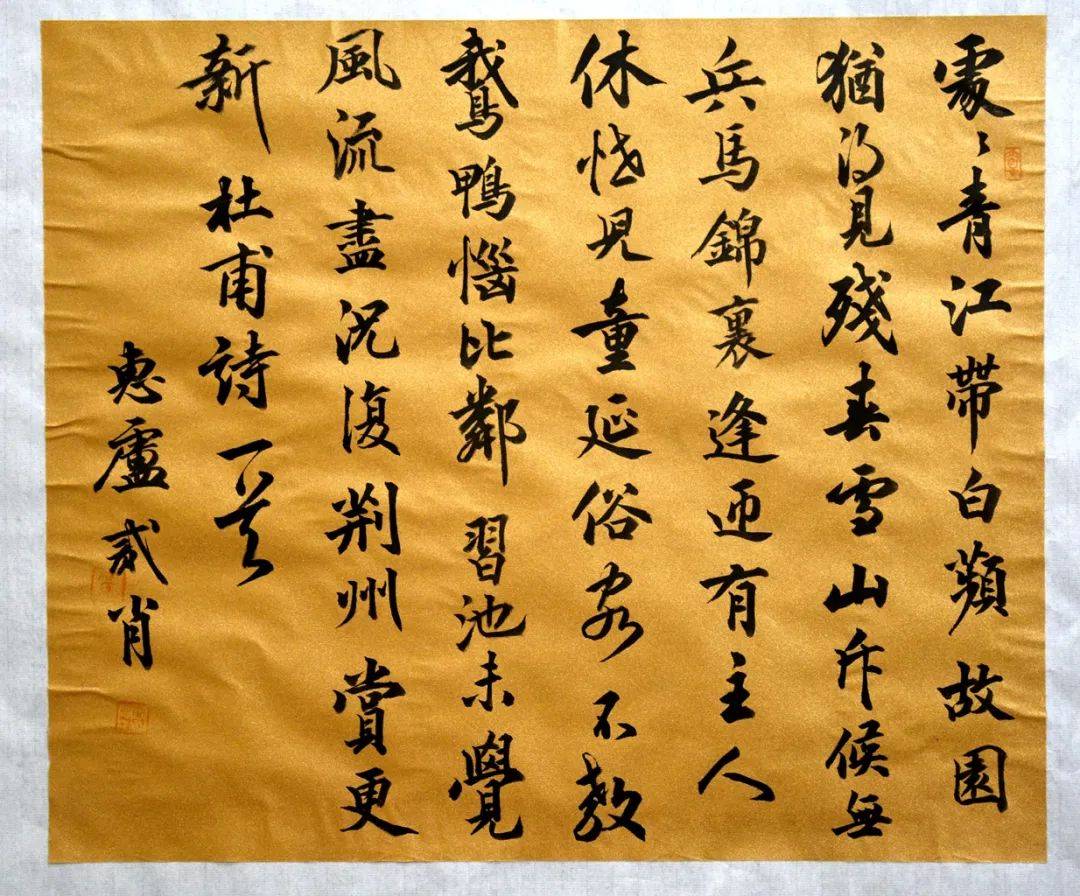 處〻青江帶白蘋故園
猶得見殘春雪山斥候無
兵馬錦裏逢迎有主人
休怪兒童延俗客不教
鵞鴨惱比鄰習池未覺
風流盡況復荆州賞更
新 杜甫詩一首
惠盧貳肖